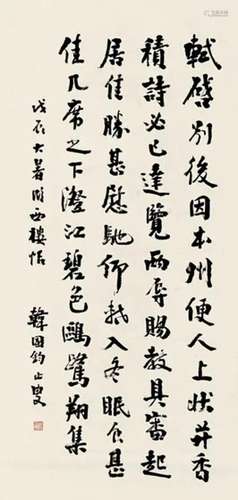 軾啓別後因本州便人上狀并香
積詩必已達覽兩辱賜教具審起
居佳勝甚慰馳仰軾入冬眠食甚
佳几席之下澄江碧色鷗鷺翔集
戊辰大暑臨西樓帖
韓國鈞止叟